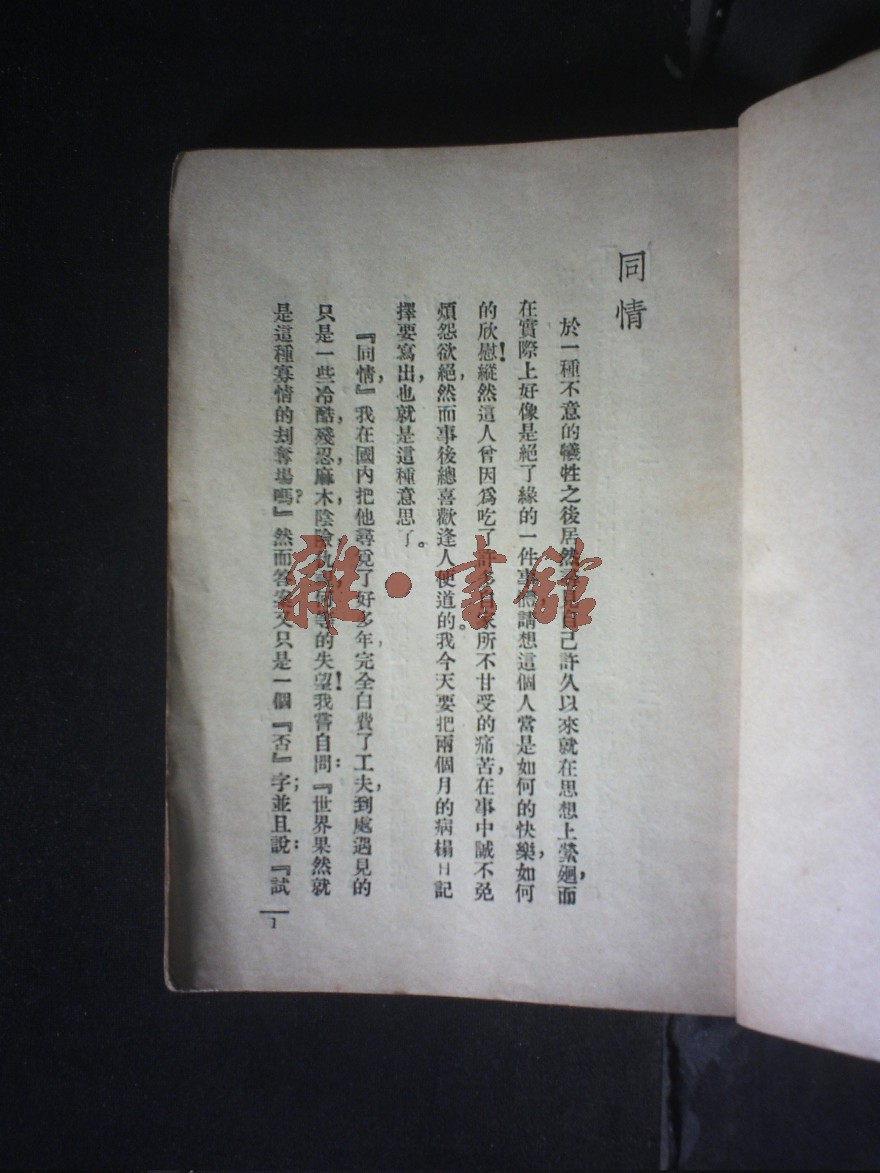 同情
於一種不意的犧牲之後居然 自己許久以來就在思想上縈迴，而
在實際上好像是絕了緣的一件事 請想這個人當是如何的快樂，如何
的欣慰！縱然這人曾因爲吃了許多 所不甘受的痛苦，在事中誠不免
煩怨欲絕，然而事後總喜歡逢人便道的。我今天要把兩個月的病榻日記
擇要寫出，也就是這種意思了。
『同情』，我在國內把他尋覓了好多年，完全白費了工夫，到處遇見的
只是一些冷酷，殘忍，麻木，陰險 等的失望！我嘗自問：『世界果然就
是這種寡情的刦奪場嗎？』然而答案又只是一個『否』字；並且說：『試
1
雜·書館